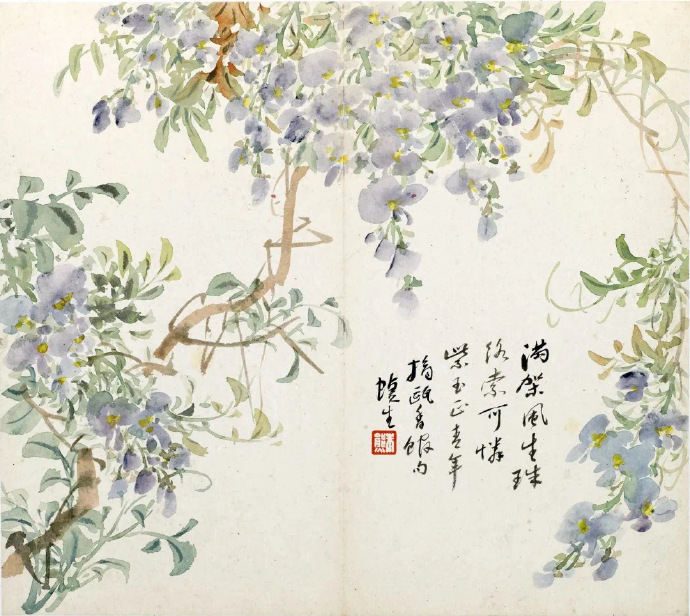 满架風生珠
络索可憐
紫玉正青年
摘甌香館句
慎生